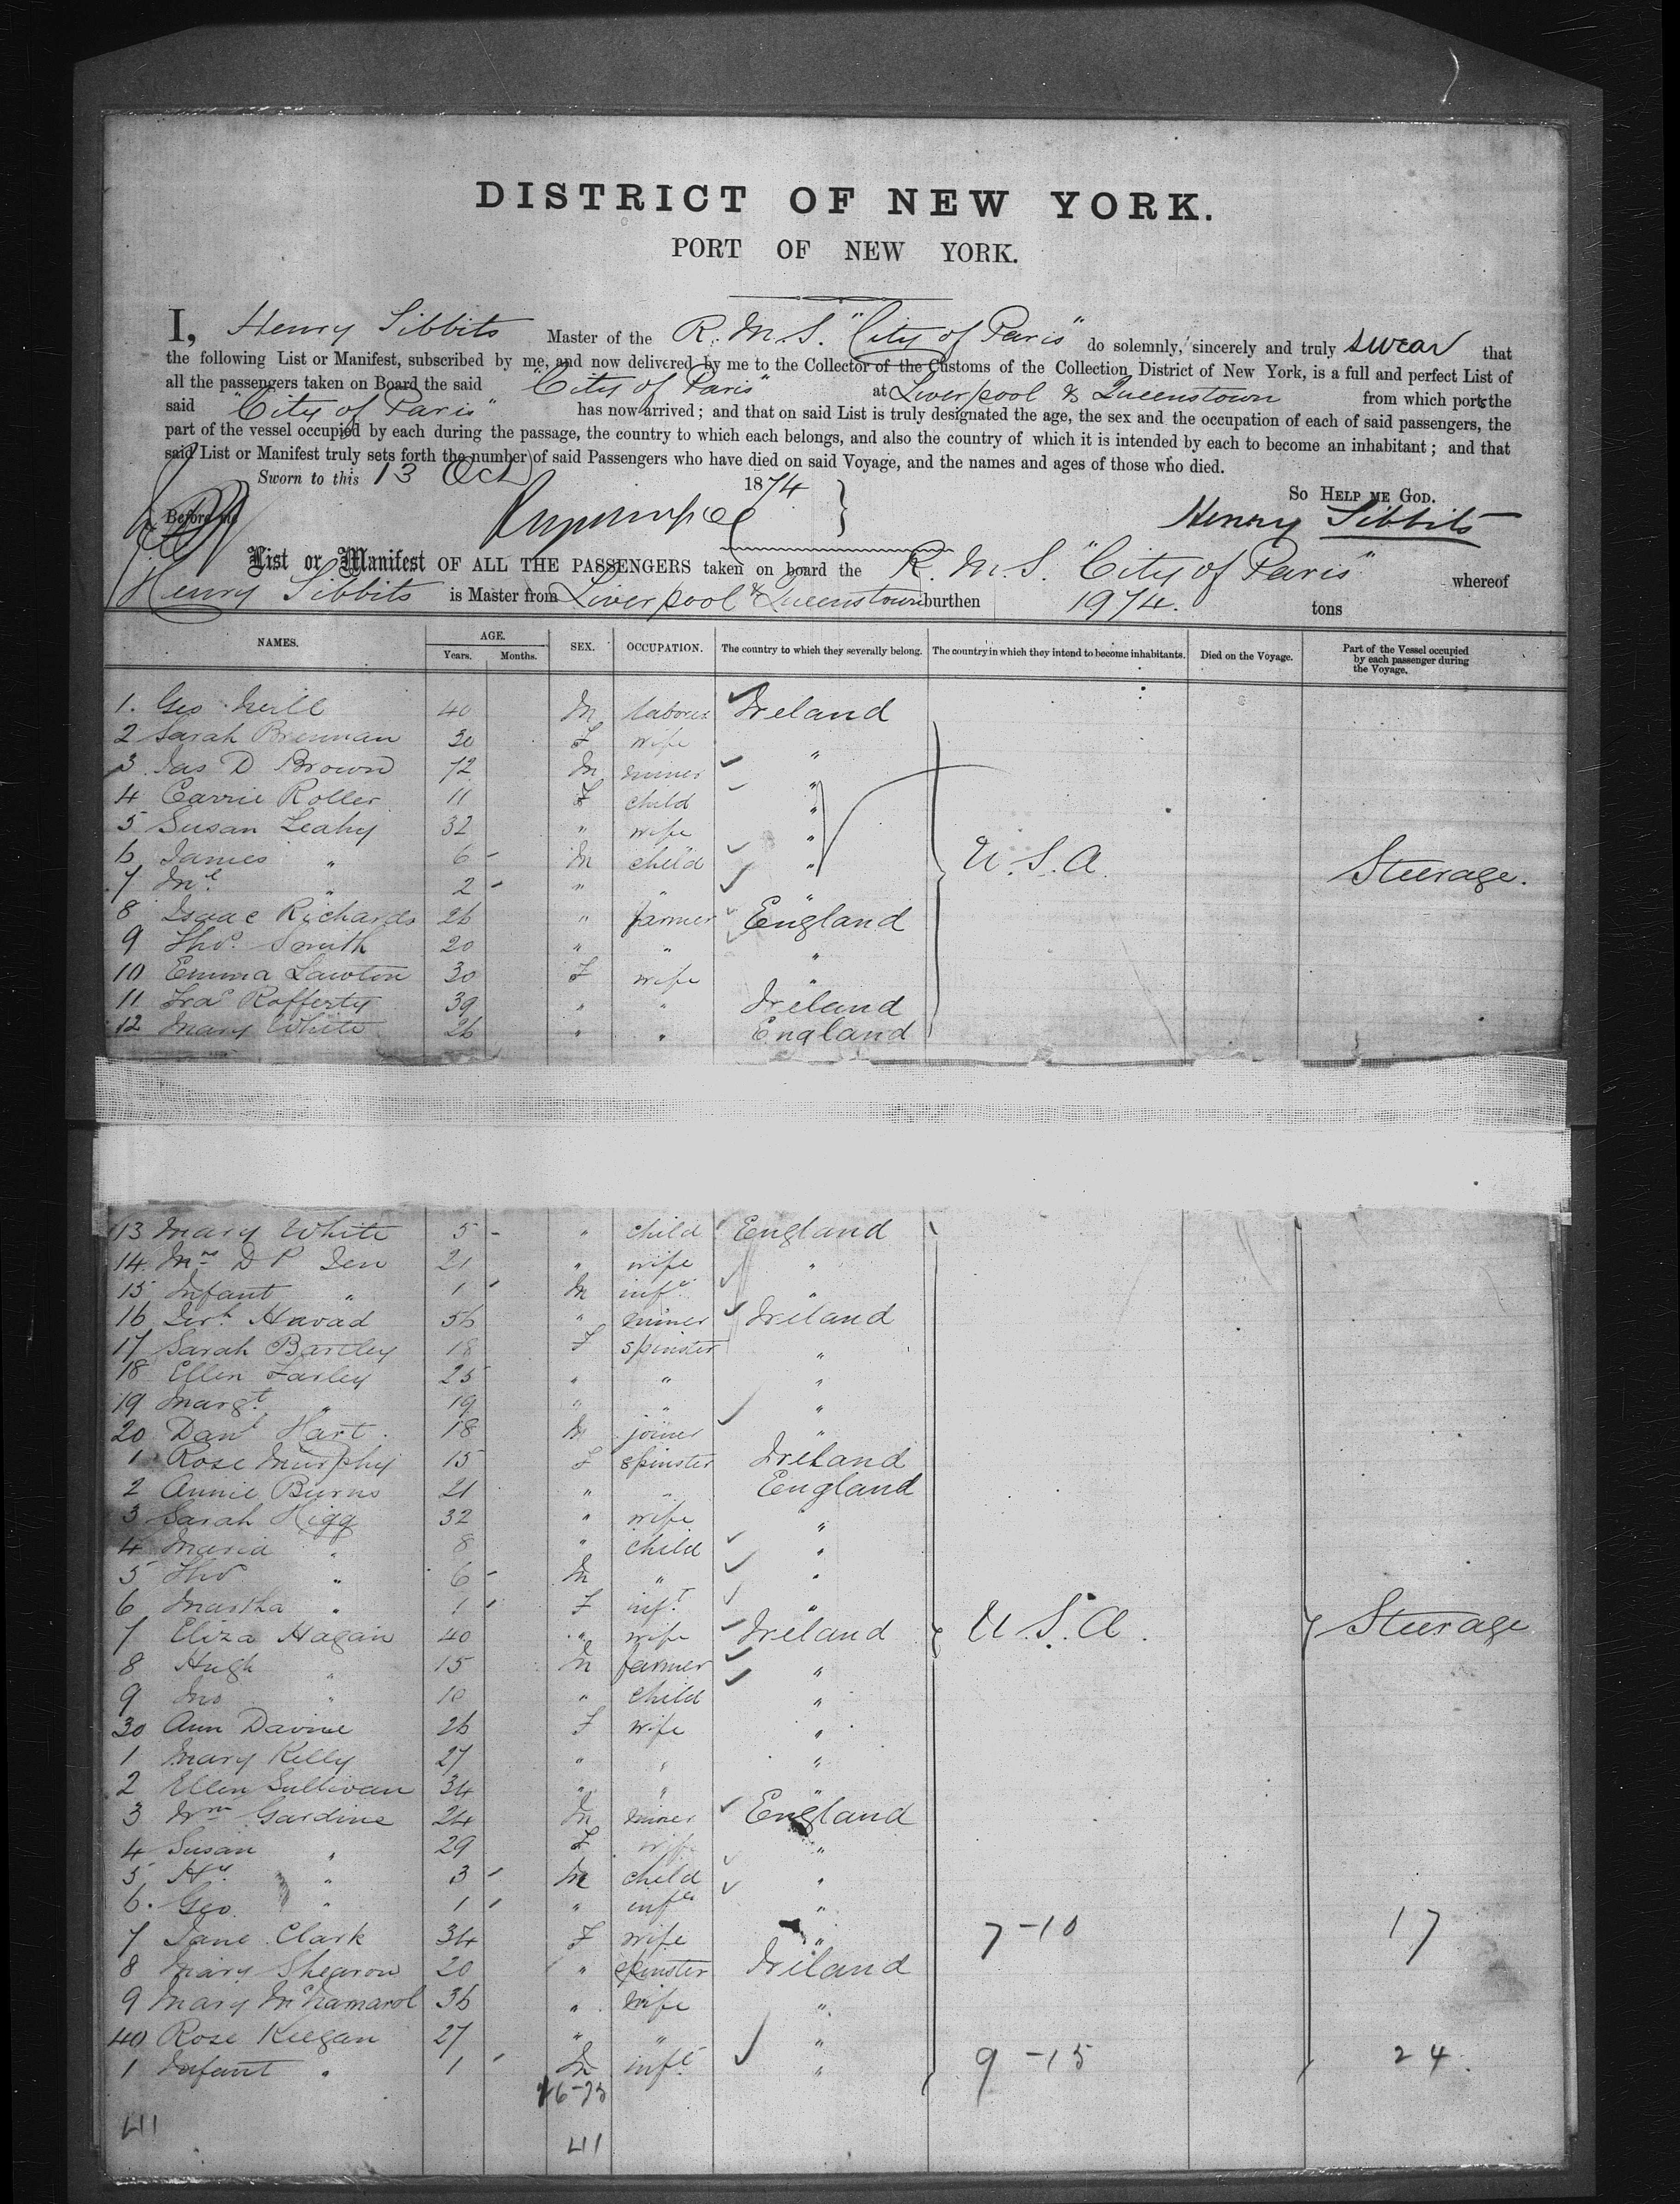 DISTRICT OF NEW YORK.
PORT OF NEW YORK.
I, Henry Sibbits Master of the R.M.S. "City of Paris" do solemnly, sincerely and truly swear that
the following List or Manifest, subscribed by me, and now delivered by me to the Collector of the Customs of the Collection District of New York, is a full and perfect List of
all the passengers taken on Board the said "City of Paris" at Liverpool & Queenstown from which ports the
said "City of Paris" has now arrived; and that on said List is truly designated the age, the sex and the occupation of each of said passengers, the
part of the vessel occupied by each during the passage, the country to which each belongs, and also the country of which it is intended by each to become an inhabitant; and that
said List or Manifest truly sets forth the number of said Passengers who have died on said Voyage, and the names and ages of those who died.
Sworn to this 13 Oct 1874 So Help me God.
Before me Henry Sibbits
List or Manifest OF ALL THE PASSENGERS taken on board the R.M.S. "City of Paris" whereof
Henry Sibbits is Master from Liverpool & Queenstown burthen 1974. tons
NAMES. AGE. Years. Months. SEX. OCCUPATION. The country to which they severally belong. The country in which they intend to become inhabitants. Died on the Voyage. Part of the Vessel occupied by each passenger during the Voyage.
1. Geo Neill 40 M laborer Ireland
2 Sarah Brennan 30 F wife "
3 Jas D Brown 72 M miner "
4 Carrie Roller 11 F child "
5 Susan Leahy 32 " wife "
6 James " 6 - M child " U.S.A. Steerage.
7 Ml " 2 - " " "
8 Isaac Richards 26 " farmer England
9 Thos. Smith 20 " " "
10 Emma Lawton 30 F wife "
11 Fras Rafferty 39 " " Ireland
12 Mary White 26 " " England
13 Mary White 5 - " child England
14 Mrs D P Den 21 " wife "
15 Infant " 1 ' M inft "
16 Jerh Havad 56 " miner Ireland
17 Sarah Bartley 18 F spinster "
18 Ellen Farley 25 " " "
19 Margt. " 19 " " "
20 Danl Hart 18 M joiner "
1 Rose Murphy 15 F spinster Ireland
2 Annie Burns 21 " " England
3 Sarah Higg 32 " wife "
4 Maria " 8 " child "
5 Thos " 6 - M " "
6 Martha " 1 ' F inft. "
7 Eliza Hagan 40 " wife Ireland U.S.A. Steerage
8 Hugh " 15 M farmer "
9 Jno " 10 " child "
30 Ann Davine 26 F wife "
1 Mary Kelly 27 " " "
2 Ellen Sullivan 34 " " "
3 Wm Gardine 24 M miner England
4 Susan " 29 F wife "
5 Hy " 3 ' M child "
6. Geo. " 1 ' " inft "
7 Jane Clark 34 F wife " 7-10 17
8 Mary Shearon 20 " spinster Ireland
9 Mary McNamarol 36 " wife "
40 Rose Keegan 27 " " "
1 Infant " 1 ' M inft. " 9-15 24.
41
41